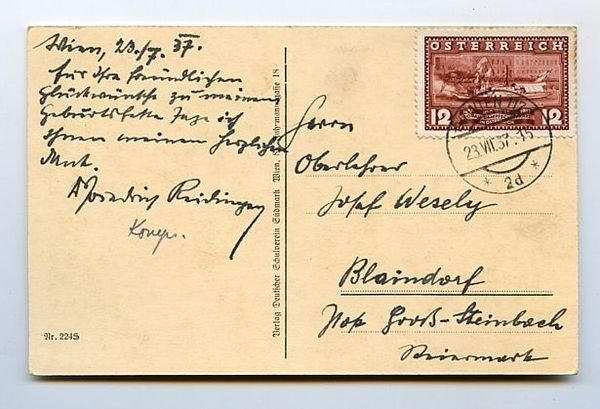 Wien, 23./7. 37.
Für Ihre freundlichen
Glückwünsche zu meinem
Geburtsfeste sage ich
Ihnen meinen herzlichen
Dank.
Friedrich Reidinger
Komp.
Nr. 2245
Verlag Deutscher Schulverein Südmark Wien, 8., Fuhrmannsgasse 18
ÖSTERREICH
12
12
23.VII.37
* 2d *
Herrn
Oberlehrer
Josef Wesely
Blaindorf
Post Groß-Steinbach
Steiermark